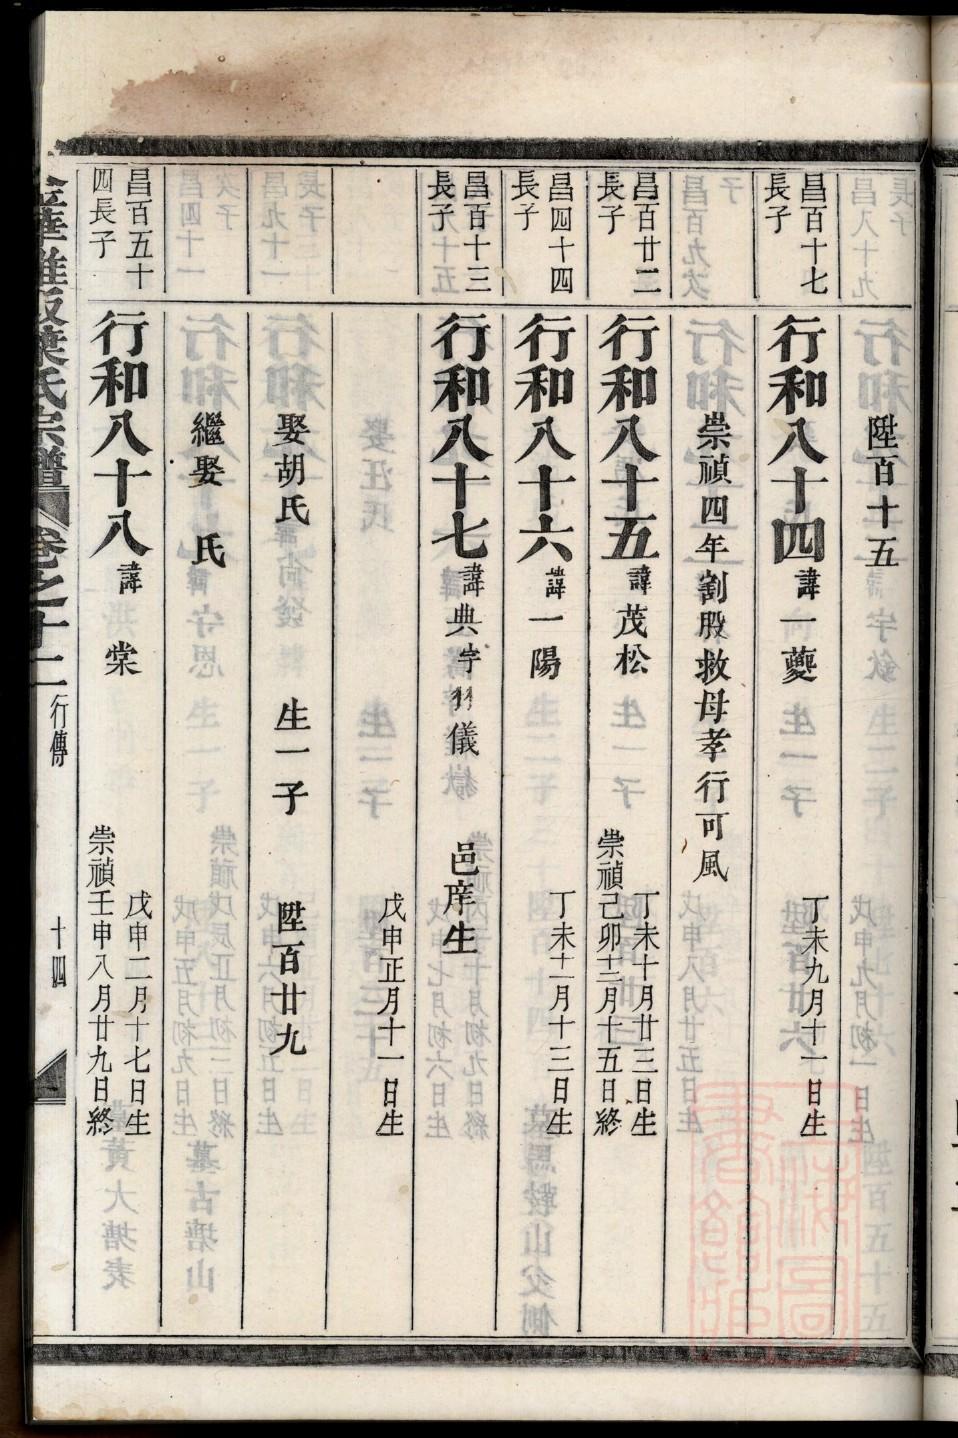 陞百十五
昌百十七
長子
行和八十四諱一夔
丁未九月十一日生
崇禎四年割股救母孝行可風
昌百廿二
長子
行和八十五諱茂松
丁未十月廿三日生
崇禎己卯十二月十五日終
昌四十四
長子
行和八十六諱一陽
丁未十一月十三日生
昌百十三
長子
行和八十七諱典字羽儀 邑庠生
戊申正月十一日生
娶胡氏 生一子 陞百廿九
繼娶 氏
昌百五十
四長子
行和八十八諱棠
戊申二月十七日生
崇禎壬申八月廿九日終
葉氏宗譜 卷之十二 行傳 十四